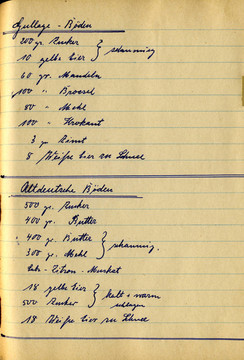 Gullage - Böden
200 gr. Zucker } schaumig
10 gelbe Eier
60 gr. Mandeln
100 " Brösel
80 " Mehl
100 " Krokant
3 gr. Zimt
8 Weiße Eier zu Schnee
Altdeutsche Böden
500 gr. Zucker
400 gr. Butter
400 gr. Butter } schaumig.
300 gr. Mehl
Zitron - Muskat
18 gelbe Eier } kalt + warm
500 Zucker schlagen
18 Weiße Eier zu Schnee